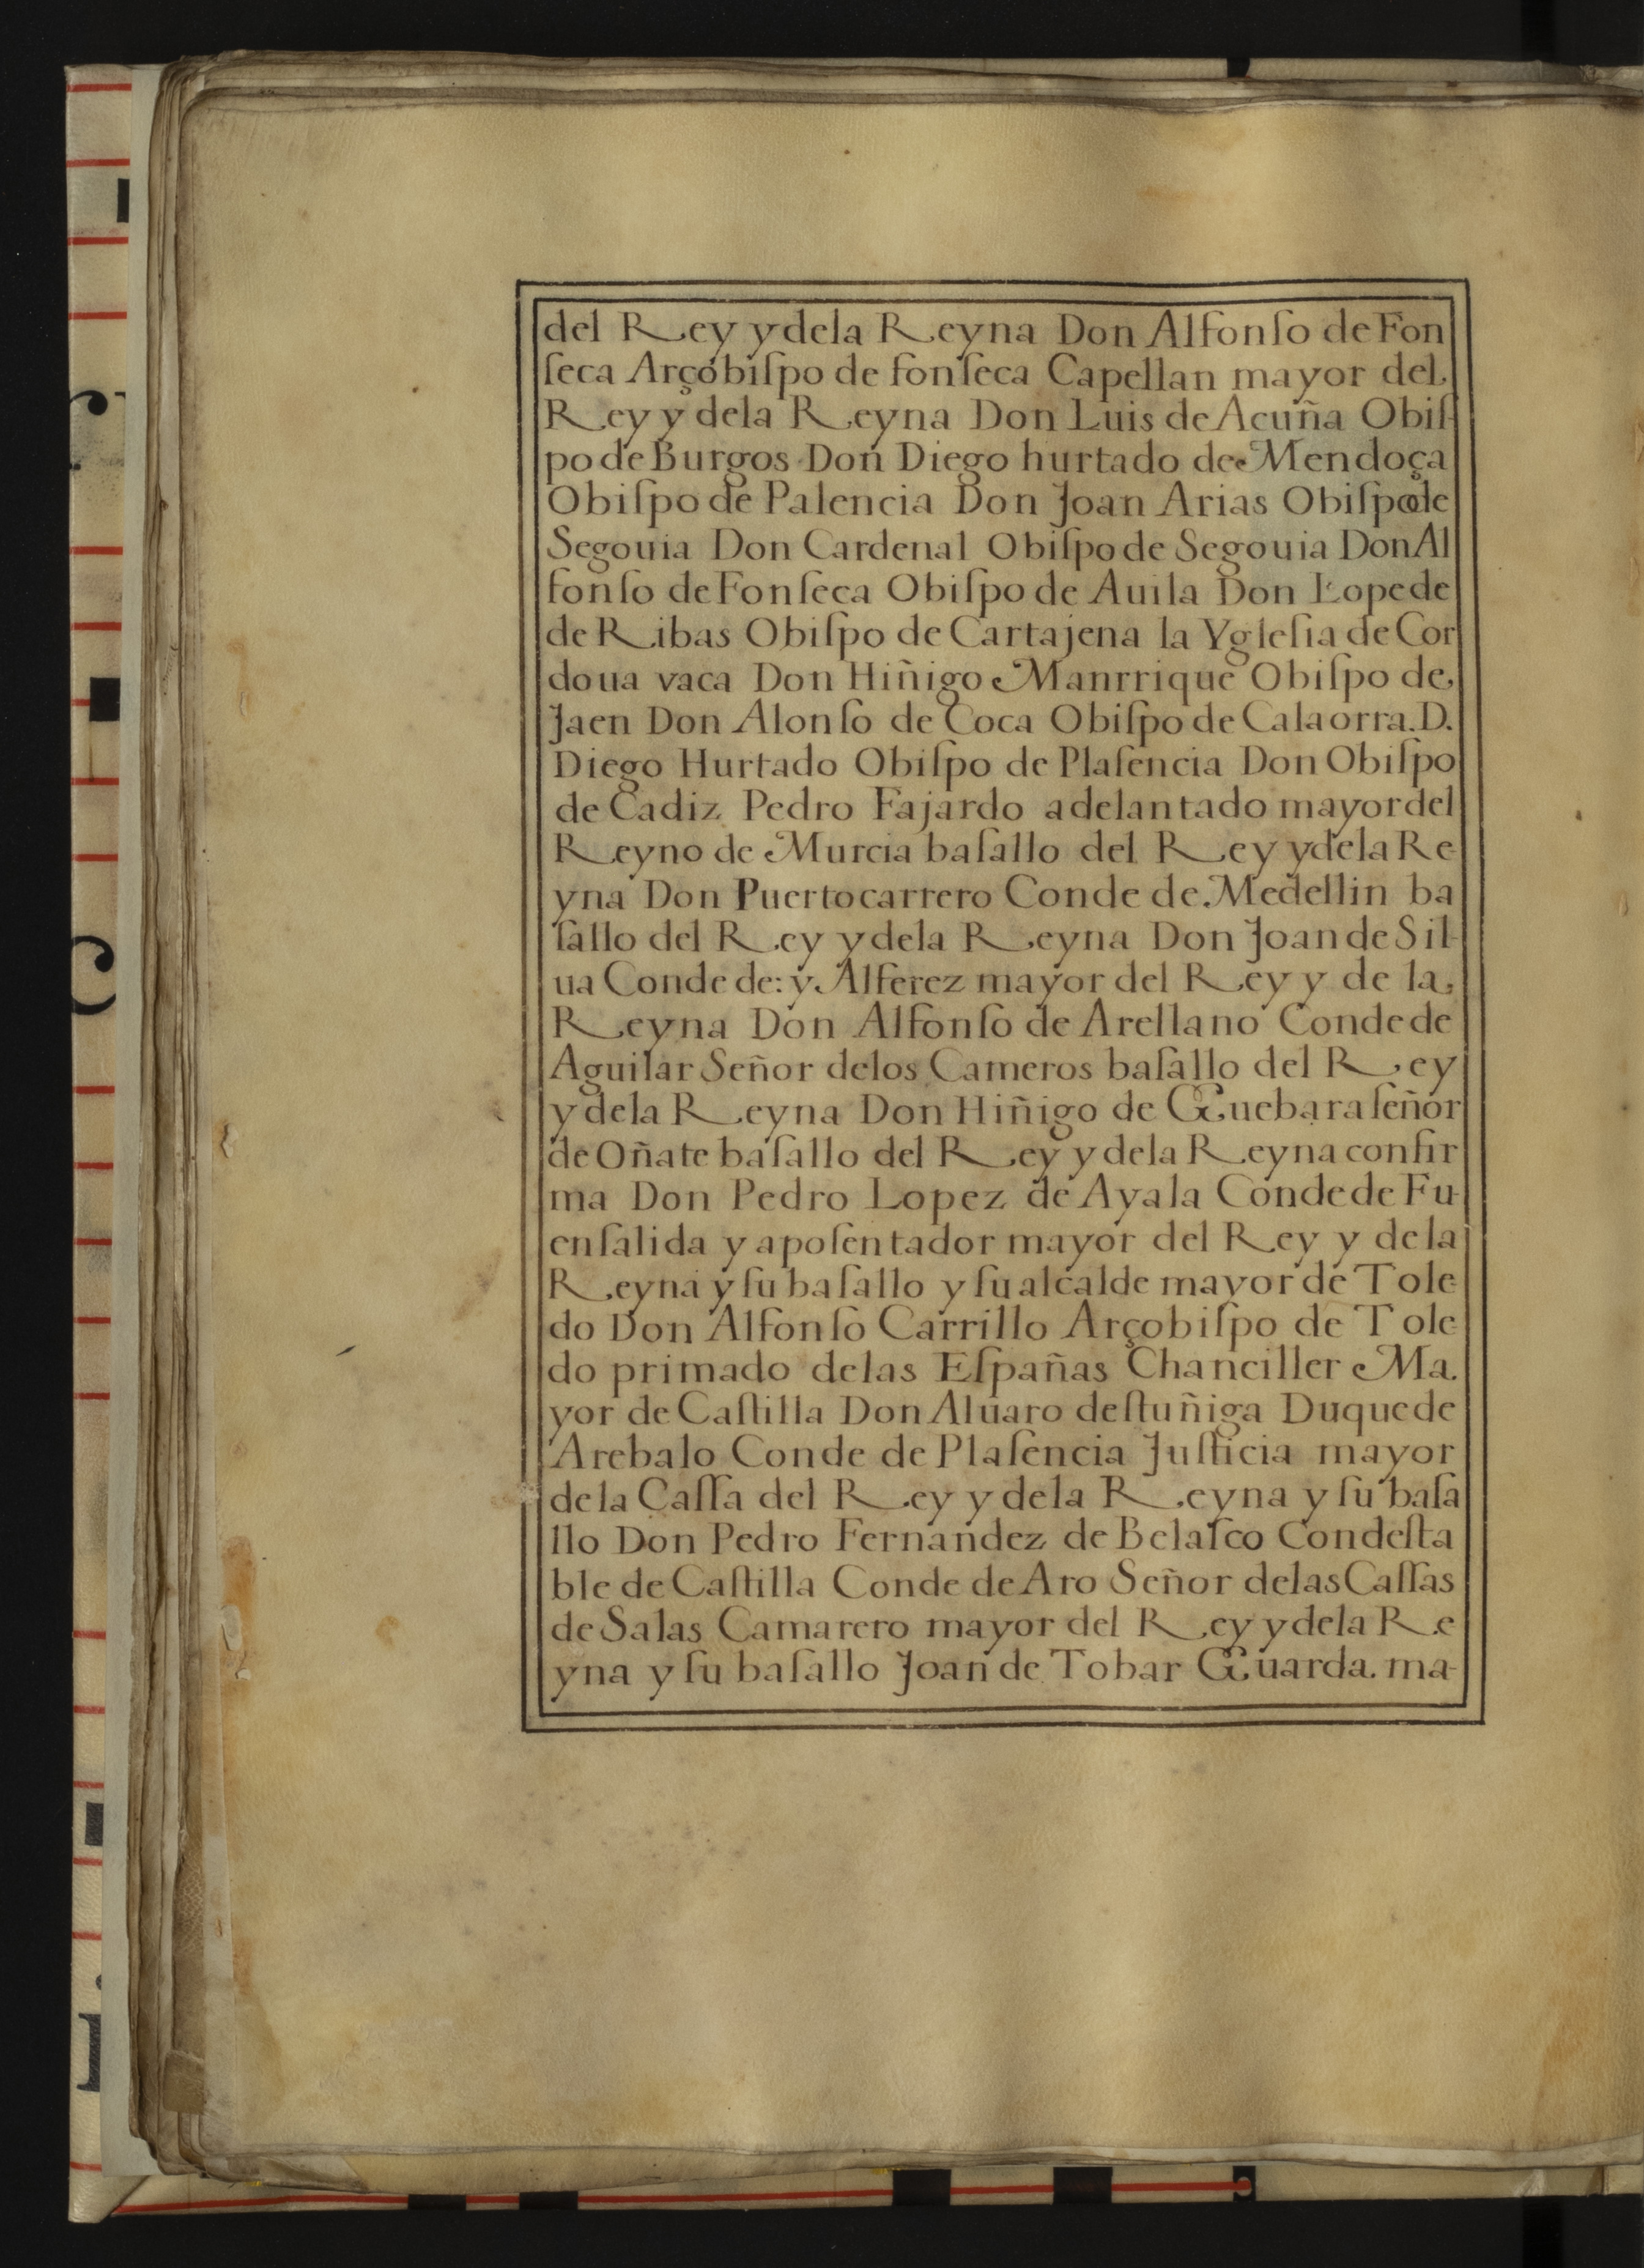 del Rey y dela Reyna Don Alfonſo de Fon
ſeca Arçobiſpo de fonſeca Capellan mayor del
Rey y dela Reyna Don Luis de Acuña Obiſ-
po de Burgos Don Diego hurtado de Mendoça
Obiſpo de Palencia Don Joan Arias Obiſpo de
Segouia Don Cardenal Obiſpo de Segouia Don Al
fonſo de Fonſeca Obiſpo de Auila Don Lope de
de Ribas Obiſpo de Cartajena la Ygleſia de Cor
doua vaca Don Hiñigo Manrrique Obiſpo de
Jaen Don Alonſo de Coca Obiſpo de Calaorra. D.
Diego Hurtado Obiſpo de Plaſencia Don Obiſpo
de Cadiz Pedro Fajardo adelantado mayor del
Reyno de Murcia baſallo del Rey y dela Re-
yna Don Puertocarrero Conde de Medellin ba
ſallo del Rey y dela Reyna Don Joan de Sil-
ua Conde de: y Alferez mayor del Rey y de la
Reyna Don Alfonſo de Arellano Conde de
Aguilar Señor delos Cameros baſallo del Rey
y dela Reyna Don Hiñigo de Guebara ſeñor
de Oñate baſallo del Rey y dela Reyna confir
ma Don Pedro Lopez de Ayala Conde de Fu-
enſalida y apoſentador mayor del Rey y de la
Reyna y ſu baſallo y ſu alcalde mayor de Tole-
do Don Alfonſo Carrillo Arçobiſpo de Tole
do primado delas Eſpañas Chanciller Ma.
yor de Caſtilla Don Aluaro deſtuñiga Duque de
Arebalo Conde de Plaſencia Juſticia mayor
de la Caſſa del Rey y dela Reyna y ſu baſa
llo Don Pedro Fernandez de Belaſco Condeſta
ble de Caſtilla Conde de Aro Señor delas Caſſas
de Salas Camarero mayor del Rey y dela Re
yna y ſu baſallo Joan de Tobar Guarda. ma-